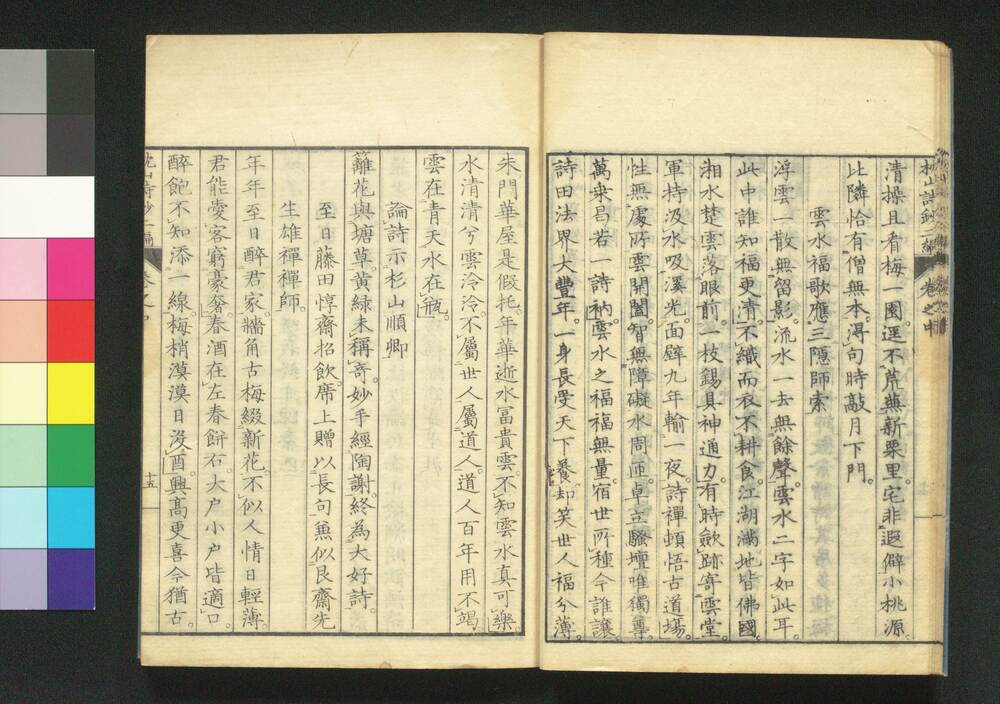 清操且看梅一園逕不荒蕪新栗里宅非遐僻小桃源
比隣恰有僧無本得句時敲月下門
雲水福歌應三隱師索
浮雲一散無留影流水一去無餘聲雲水二字如此耳
此中誰知福更清不織而衣不耕食江湖滿地皆佛國
湘水楚雲落眼前一枝錫具神通力有時歛跡寄雲堂
軍持汲水吸溪光面壁九年輸一夜詩禪頓悟古道場
性無處所雲開闔智無障礙水周帀卓立騷壇唯獨尊
萬乗昌若一詩衲雲水之福福無量宿世所種今誰讓
詩田法界大豐年一身長受天下養却笑世人福兮薄
朱門華屋是假托年華逝水冨貴雲不知雲水真可樂
水清清兮雲泠泠不屬世人屬道人道人百年用不竭
雲在青天水在瓶
論詩示杉山順卿
籬花與塘草黄緑未稱奇妙手經陶謝終為大好詩
至日藤田惇齋招飲席上贈以長句兼似艮齋先
生雄禪禪師
年年至日醉君家牆角古梅綴新花不似人情日輕薄
君能愛客窮豪奢春酒在左春餅右大户小户皆適口
醉飽不知添一線梅梢漠漠日没酉興高更喜今猶古
十五